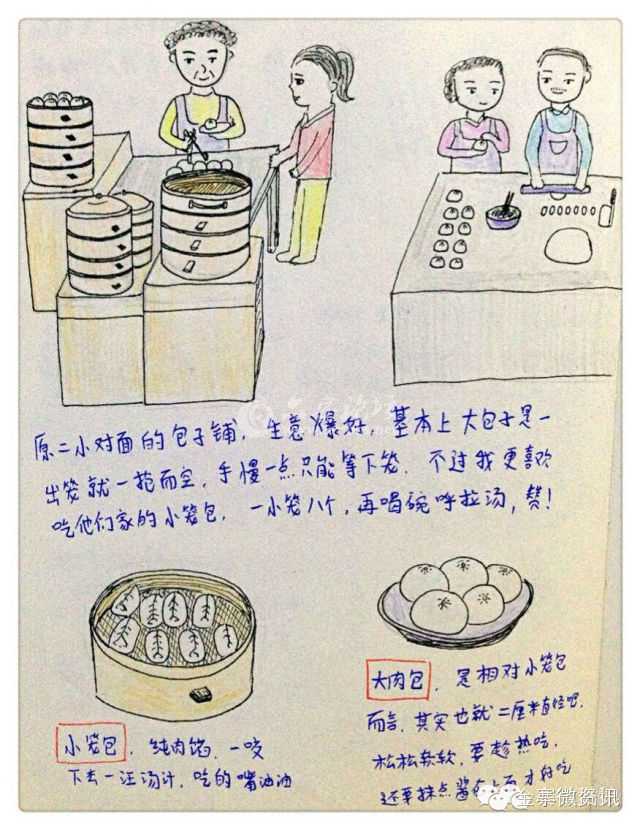 原二小对面的包子铺，生意爆好，基本上大包子是一
出笼就一抢而空，手慢一点只能等下笼．不过我更喜欢
吃他们家的小笼包．一小笼八个，再喝碗呼拉汤，赞！
小笼包．纯肉馅．一咬
下去一汪汤汁，吃的嘴油油
大肉包．是相对小笼包
而言．其实也就二厘米直径吧．
松松软软，要趁热吃．
还要抹点酱在上面才好吃
金寨微资讯